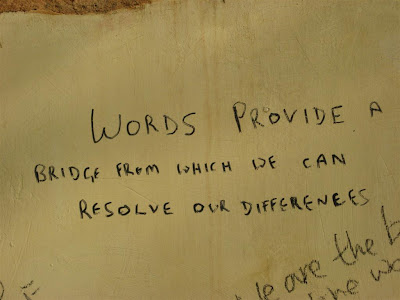 WORDS PROVIDE A
BRIDGE FROM WHICH WE CAN
RESOLVE OUR DIFFERENCES
are the